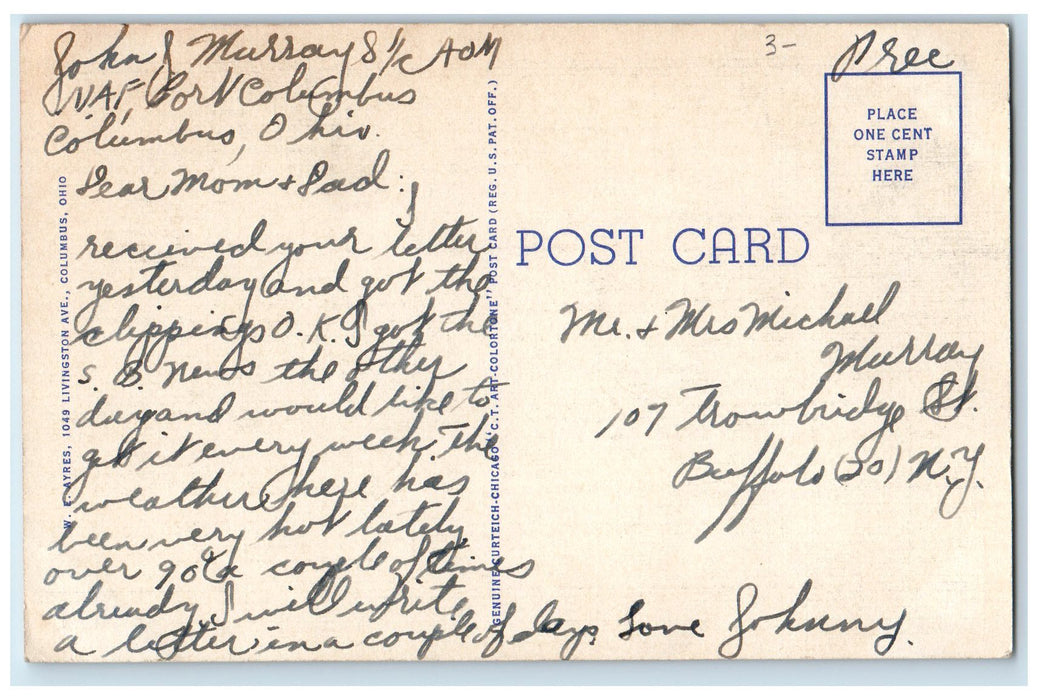 John J Murray S 1/c AOM
NAF, Port Columbus
Columbus, Ohio.
Dear Mom + Dad:
I
received your letter
yesterday and got the
clippings O.K. I got the
S. B. News the other
day and would like to
get it every week. The
weather here has
been very hot lately
over 90° a couple of times
already. I will write
a letter in a couple of days. Love Johnny.
W. E. AYRES, 1049 LIVINGSTON AVE., COLUMBUS, OHIO
GENUINE CURTEICH-CHICAGO "C.T. ART-COLORTONE" POST CARD (REG. U.S. PAT. OFF.)
3-
Free
PLACE
ONE CENT
STAMP
HERE
POST CARD
Mr. + Mrs Michael
Murray
107 Trowbridge St.
Buffalo (20) N.Y.